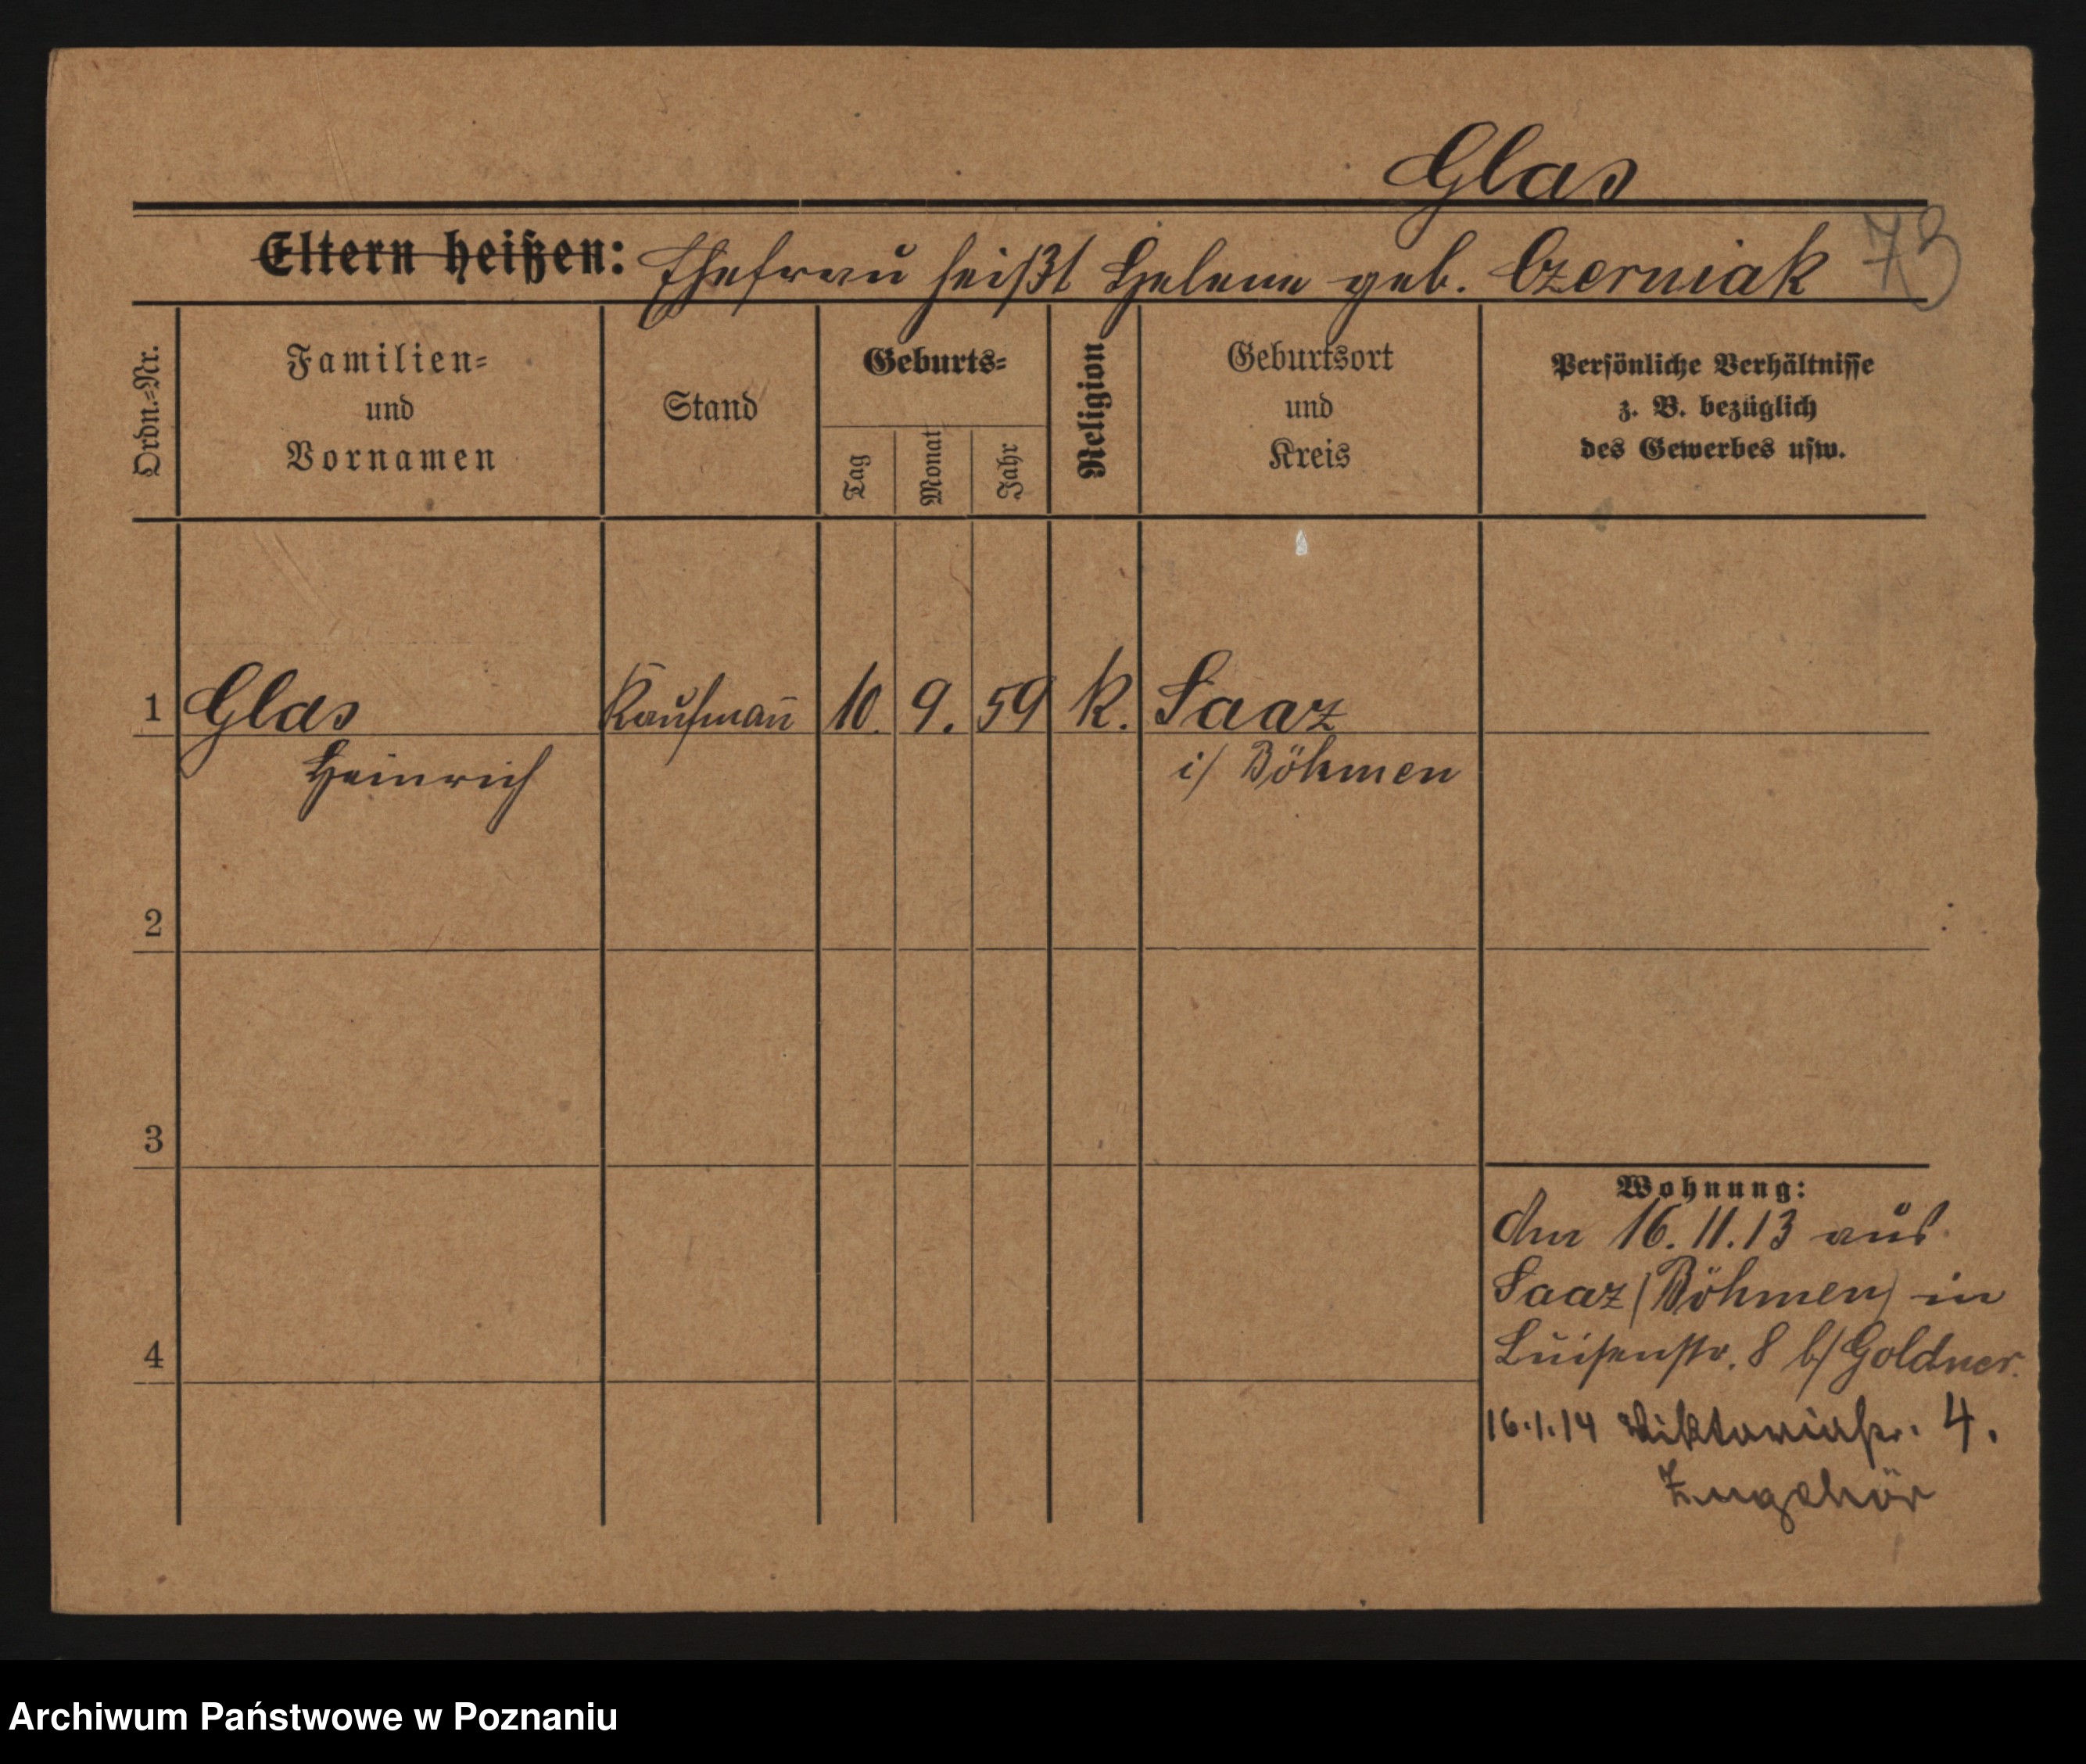 Glas
73
Eltern heißen: Ehefrau heißt Helene geb. Czerniak
Ordn.=Nr.
Familien=
und
Vornamen
Stand
Geburts=
Tag
Monat
Jahr
Religion
Geburtsort
und
Kreis
Persönliche Verhältnisse
z. B. bezüglich
des Gewerbes usw.
1 Glas Kaufmañ 10. 9. 59 k. Saaz
Heinrich i/ Böhmen
2
3
4
Wohnung:
den 16.11.13 aus
Saaz (Böhmen) in
Luisenstr. 8 b/ Goldner.
16.1.14 Viktoriastr. 4.
Archiwum Państwowe w Poznaniu